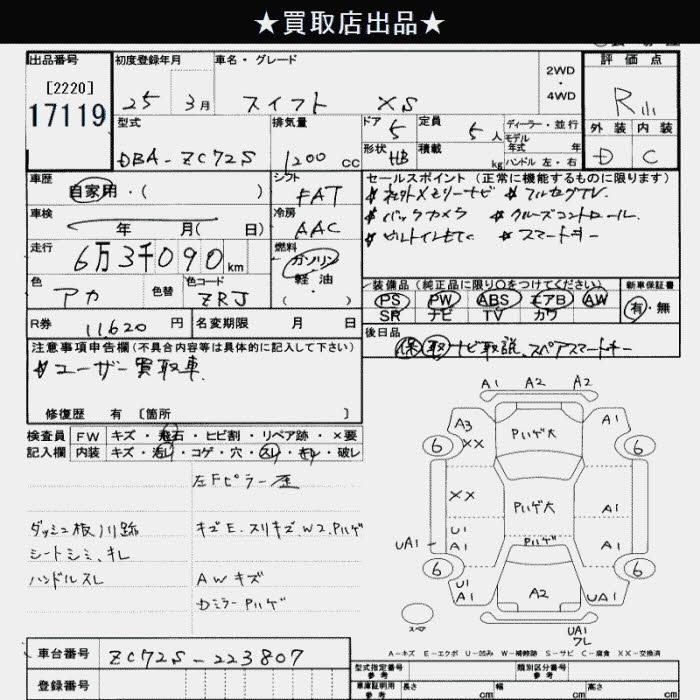 ★買取店出品★
出品番号
[2220]
17119
初度登録年月
25 3月
車名・グレード
スイフト XS
2WD
・
4WD
評価点
R
外装 内装
D C
型式
DBA-ZC72S
排気量
1200 cc
ドア 5
定員 5人
形状 HB
積載 kg
ディーラー・並行
モデル
年式 年
ハンドル 左・右
車歴
自家用・( )
シフト
FAT
車検
年 月( 日)
冷房
AAC
走行
6万3千090km
燃料
ガソリン
軽油
・
( )
色
アカ
色替
色コード
ZRJ
R券 11,620円
名変期限 月 日
セールスポイント(正常に機能するものに限ります)
★社外メモリーナビ ★フルセグTV
★バックカメラ ★クルーズコントロール
★ビルトインETC ★スマートキー
装備品(純正品に限り○をつけてください)
PS PW ABS エアB AW
SR ナビ TV カワ
新車保証書
有・無
後日品
保 取 ナビ取説、スペアスマートキー
注意事項申告欄(不具合内容等は具体的に記入して下さい)
★ユーザー買取車
修復歴 有〔箇所 〕
検査員 FW キズ・飛石・ヒビ割・リペア跡・×要
記入欄 内装 キズ・汚レ・コゲ・穴・スレ・キレ・破レ
左Fピラー歪
ダッシュ板 跡
キズE、スリキズ、W2、Pハゲ
シートシミ、キレ
ハンドルスレ
AWキズ
カミラーPハゲ
A1 A2 A2
A3 XX Pハゲ大 A1
6 6
XX Pハゲ大 A1
U1
UA1 A1 A1
6 6
U1
A1 A2 UA1
スペア
UA1
ワレ
A-キズ E-エクボ U-凹み W-補修跡 S-サビ C-腐食 XX-交換済
車台番号 ZC72S-223807
登録番号
型式指定番号
参考
類別区分番号
参考
車庫証明用
参考
長さ cm 幅 cm 高さ cm